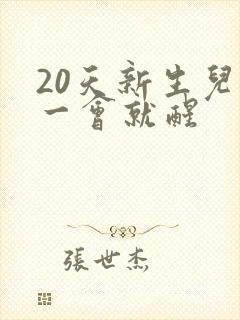 20天新生兒
一會就醒
張世杰